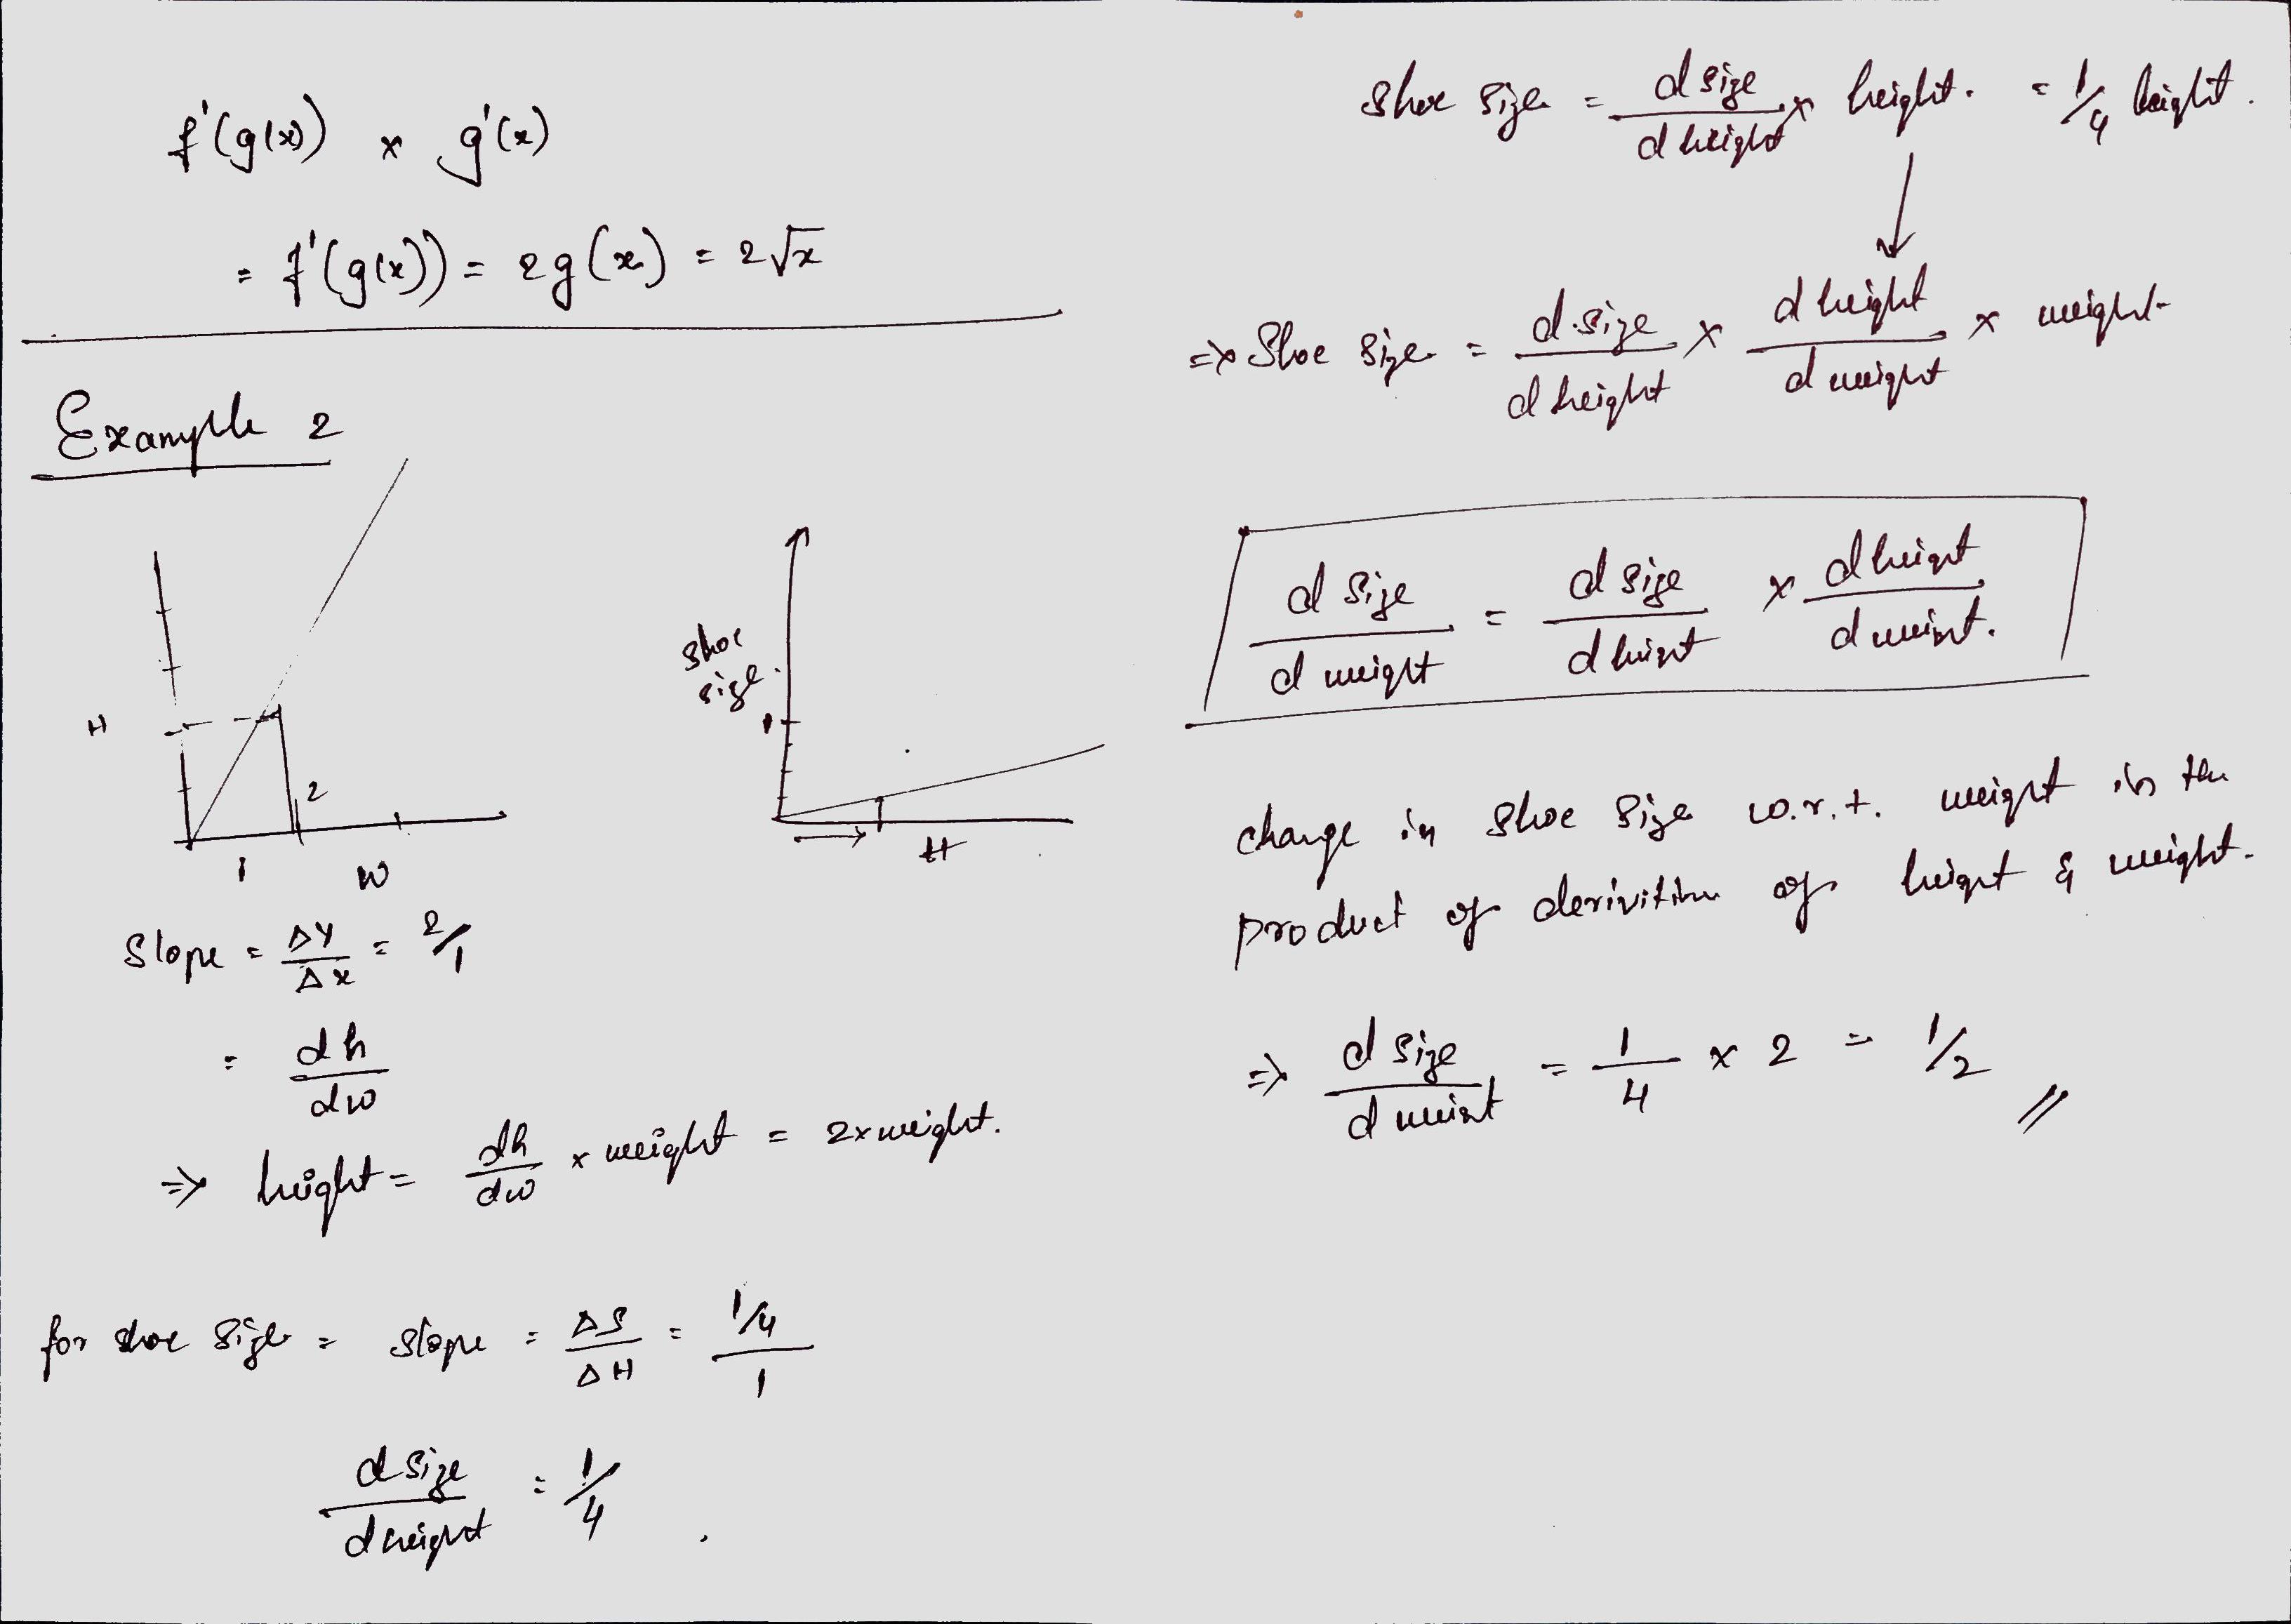 f'(g(x)) x g'(x)
= f'(g(x)) = 2g(x) = 2√x
Example 2
H
2
1
W
Shoe
size.
1
H
Slope = ΔY/Δx = 2/1
= dh/dw
=> height = dh/dw x weight = 2x weight.
for shoe size = slope = ΔS/ΔH = (1/4)/1
d size/d height = 1/4
Shoe size = d size/d height x height. = 1/4 height.
=> Shoe size = d size/d height x d height/d weight x weight
d size/d weight = d size/d height x d height/d weight.
change in Shoe Size w.r.t. weight is the
product of derivitive of height & weight.
=> d size/d weight = 1/4 x 2 = 1/2 //